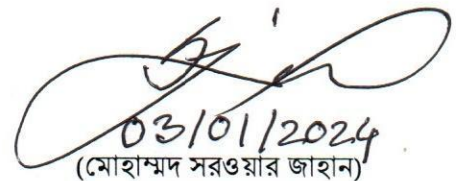 03/01/2024
(মোহাম্মদ সরওয়ার জাহান)